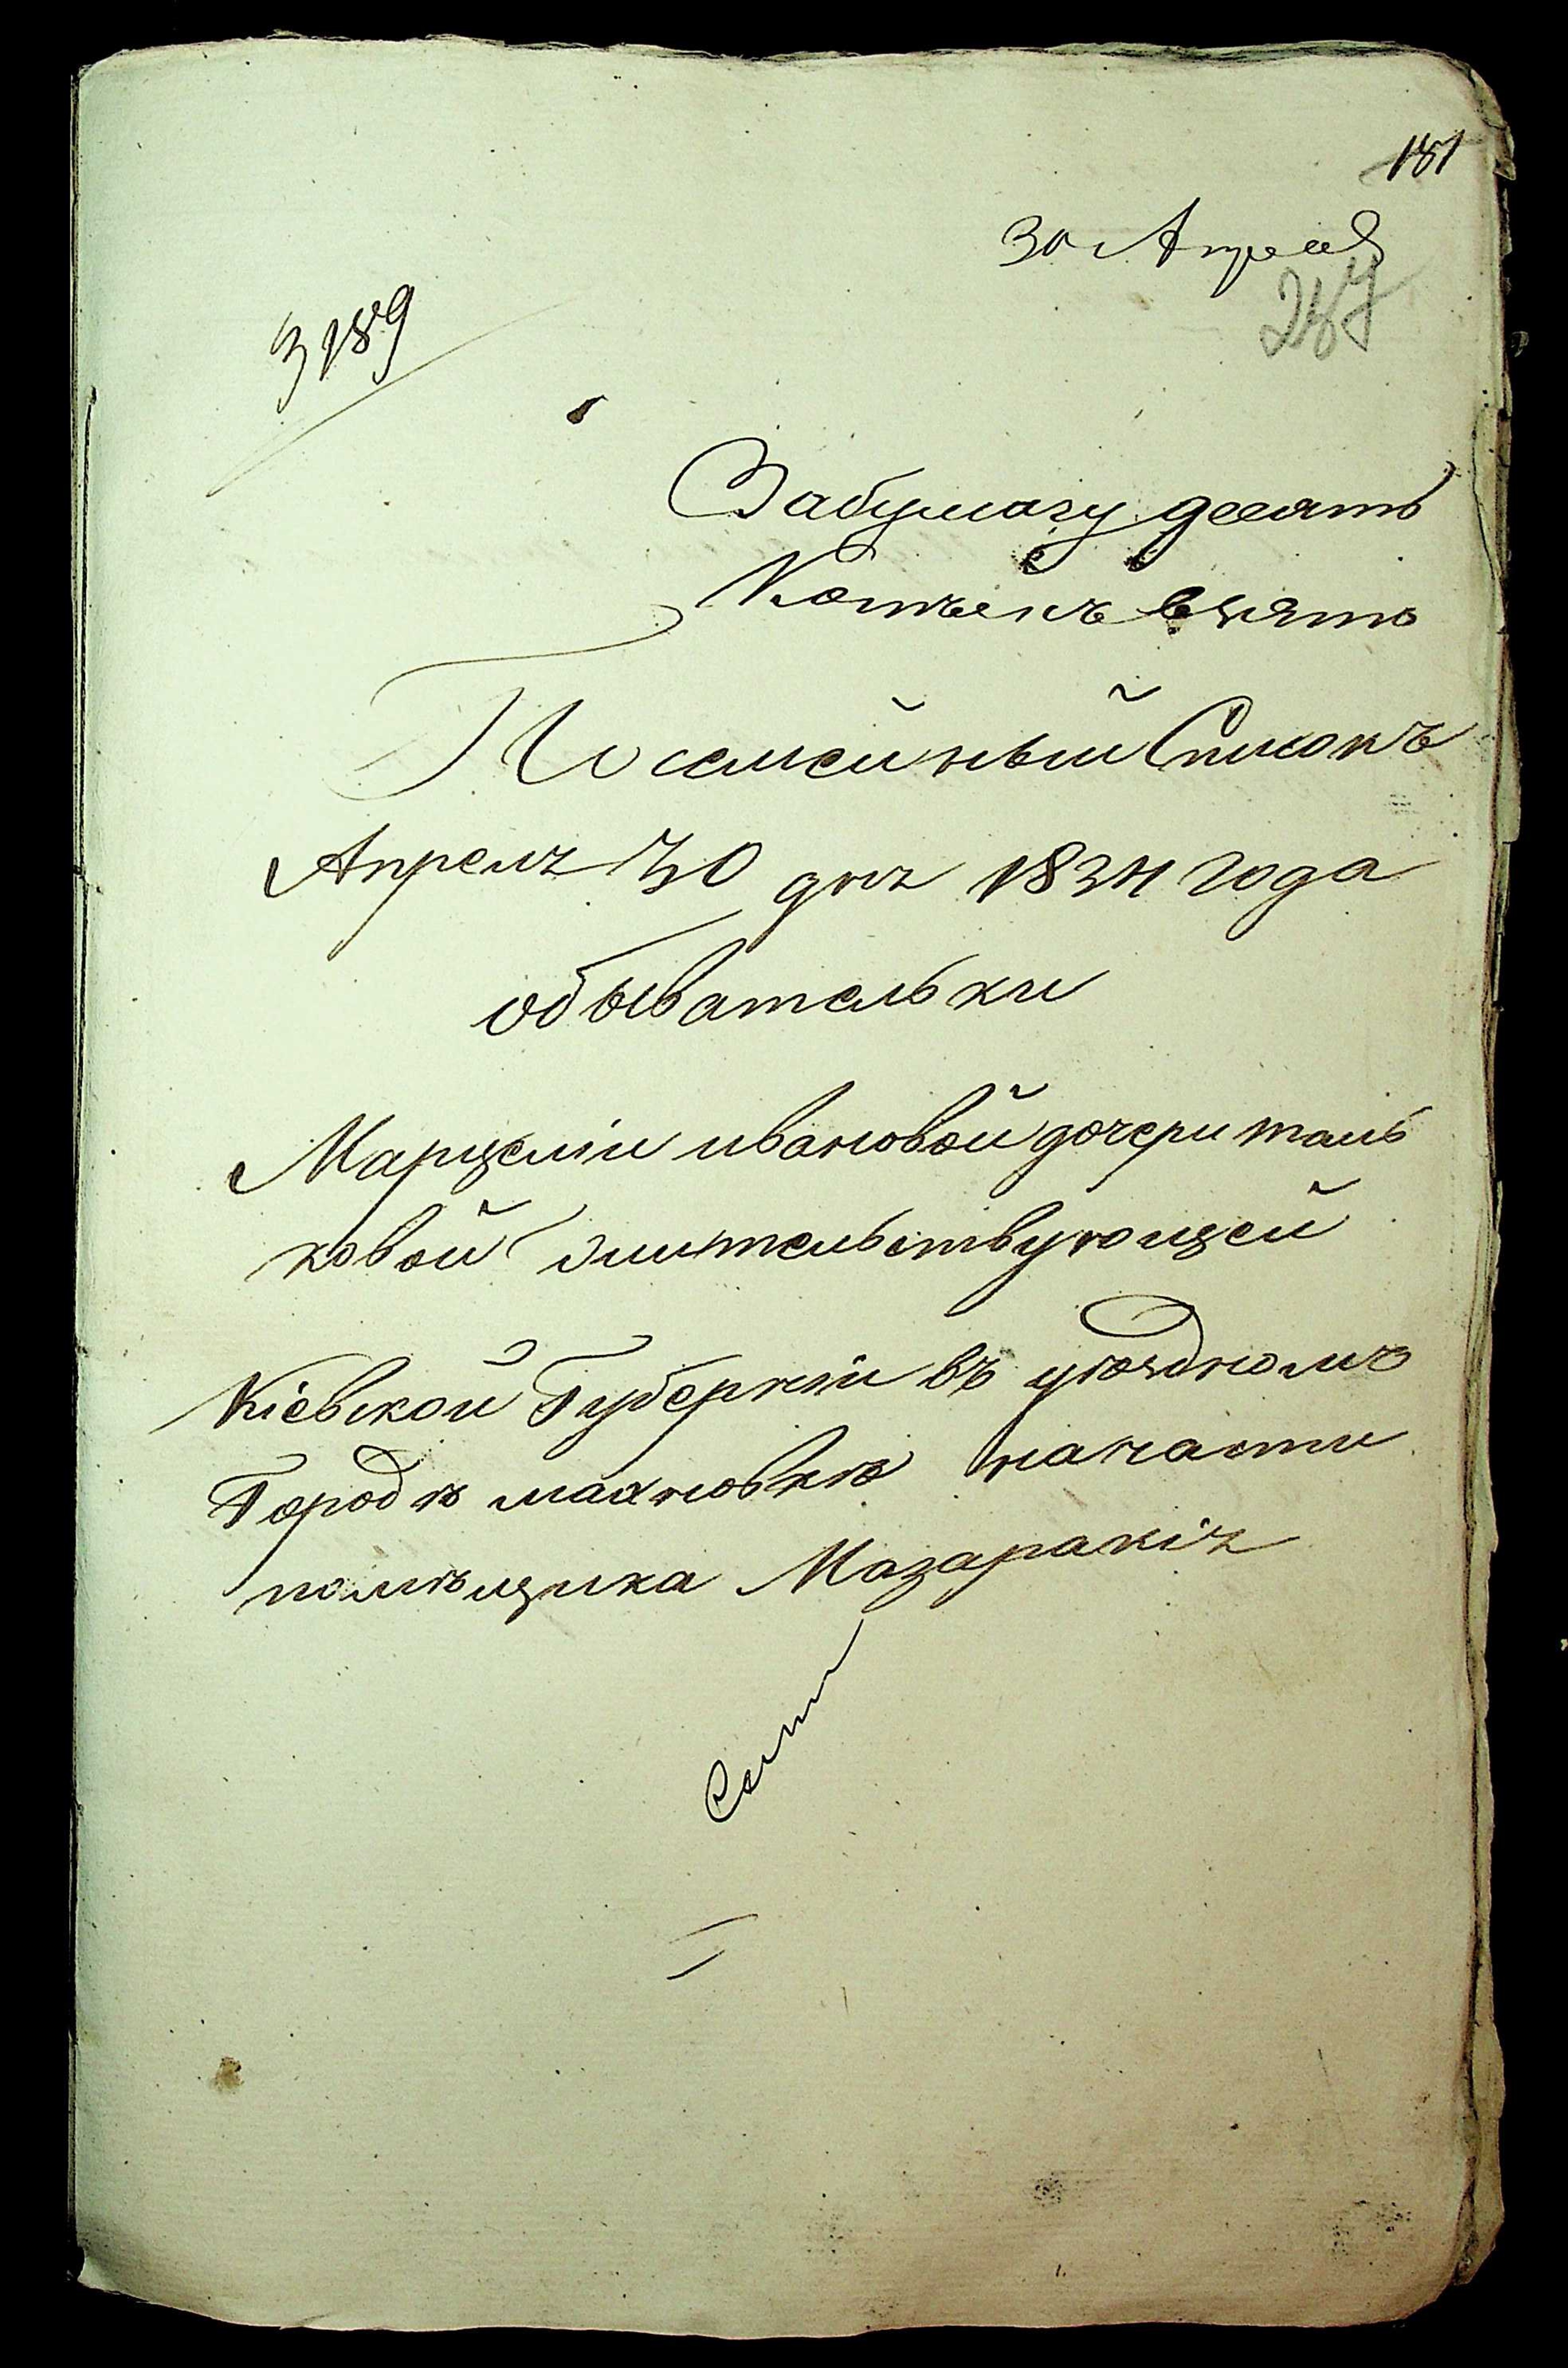 181
30 Апреля
287
3189
За бумагу десять
Копѣекъ взято
Посемейный Списокъ
Апреля 30 дня 1834 года
обывательки
Марцеліи ивановой дочери таль
ковой жительствующей
Кіевской Губерніи въ уѣздномъ
Городѣ махновкѣ на части
помѣщика Мазаракія